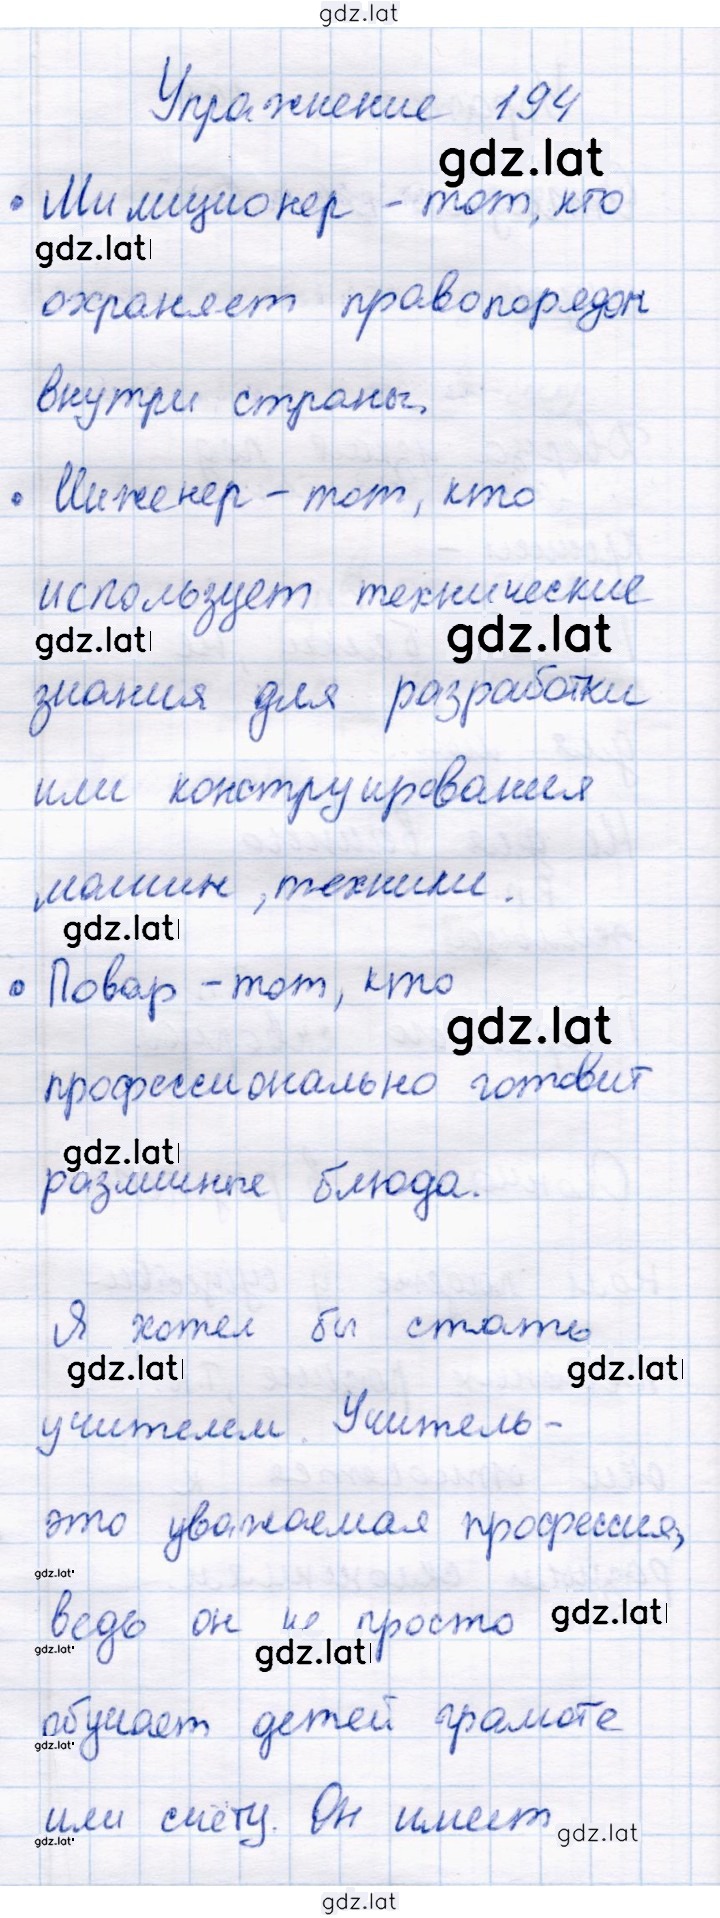 gdz.lat
Упражнение 194
gdz.lat
• Милиционер - тот, кто
gdz.lat
охраняет правопорядок
внутри страны.
• Инженер - тот, кто
использует технические
gdz.lat gdz.lat
знания для разработки
или конструирования
машин, техники.
gdz.lat
• Повар - тот, кто
gdz.lat
профессионально готовит
gdz.lat
различные блюда.
Я хотел бы стать
gdz.lat gdz.lat
учителем. Учитель -
это уважаемая профессия,
gdz.lat
ведь он не просто
gdz.lat
gdz.lat gdz.lat
обучает детей грамоте
gdz.lat
или счёту. Он имеет
gdz.lat gdz.lat
gdz.lat